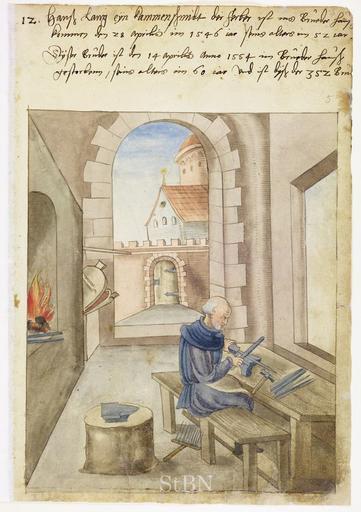 12. Hanß Lang ein kammenschmidt der starb ist ins Bruder hauß
kommen den 28 aprilis im 1546 iar seins alters im 52 iar
Dißer Bruder ist den 14 aprilis anno 1554 im Bruder hauß
gestorben, seins alters im 60 iar Vnd ist diß der 352 Bru
5
StBN